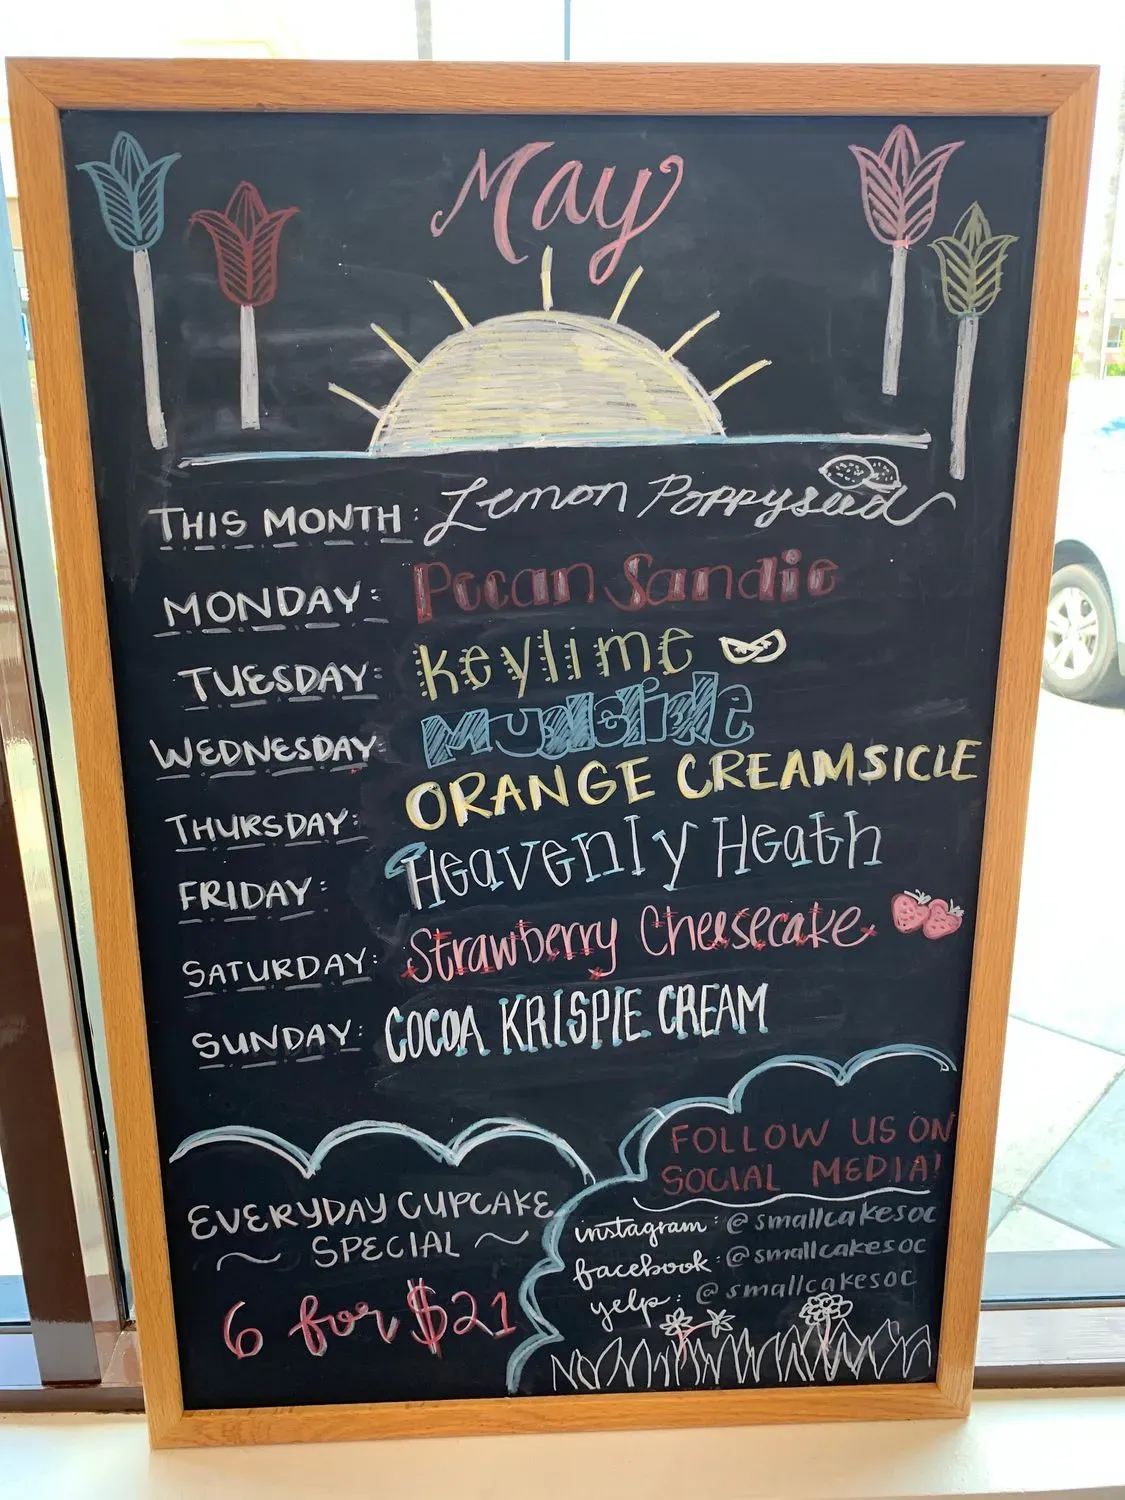 May
THIS MONTH: Lemon Poppyseed
MONDAY: Pecan Sandie
TUESDAY: Keylime
WEDNESDAY: Mudslide
THURSDAY: ORANGE CREAMSICLE
FRIDAY: Heavenly Heath
SATURDAY: Strawberry Cheesecake
SUNDAY: COCOA KRISPIE CREAM
EVERYDAY CUPCAKE
~ SPECIAL ~
6 for $21
FOLLOW US ON
SOCIAL MEDIA!
instagram: @smallcakesoc
facebook: @smallcakesoc
yelp: @smallcakesoc